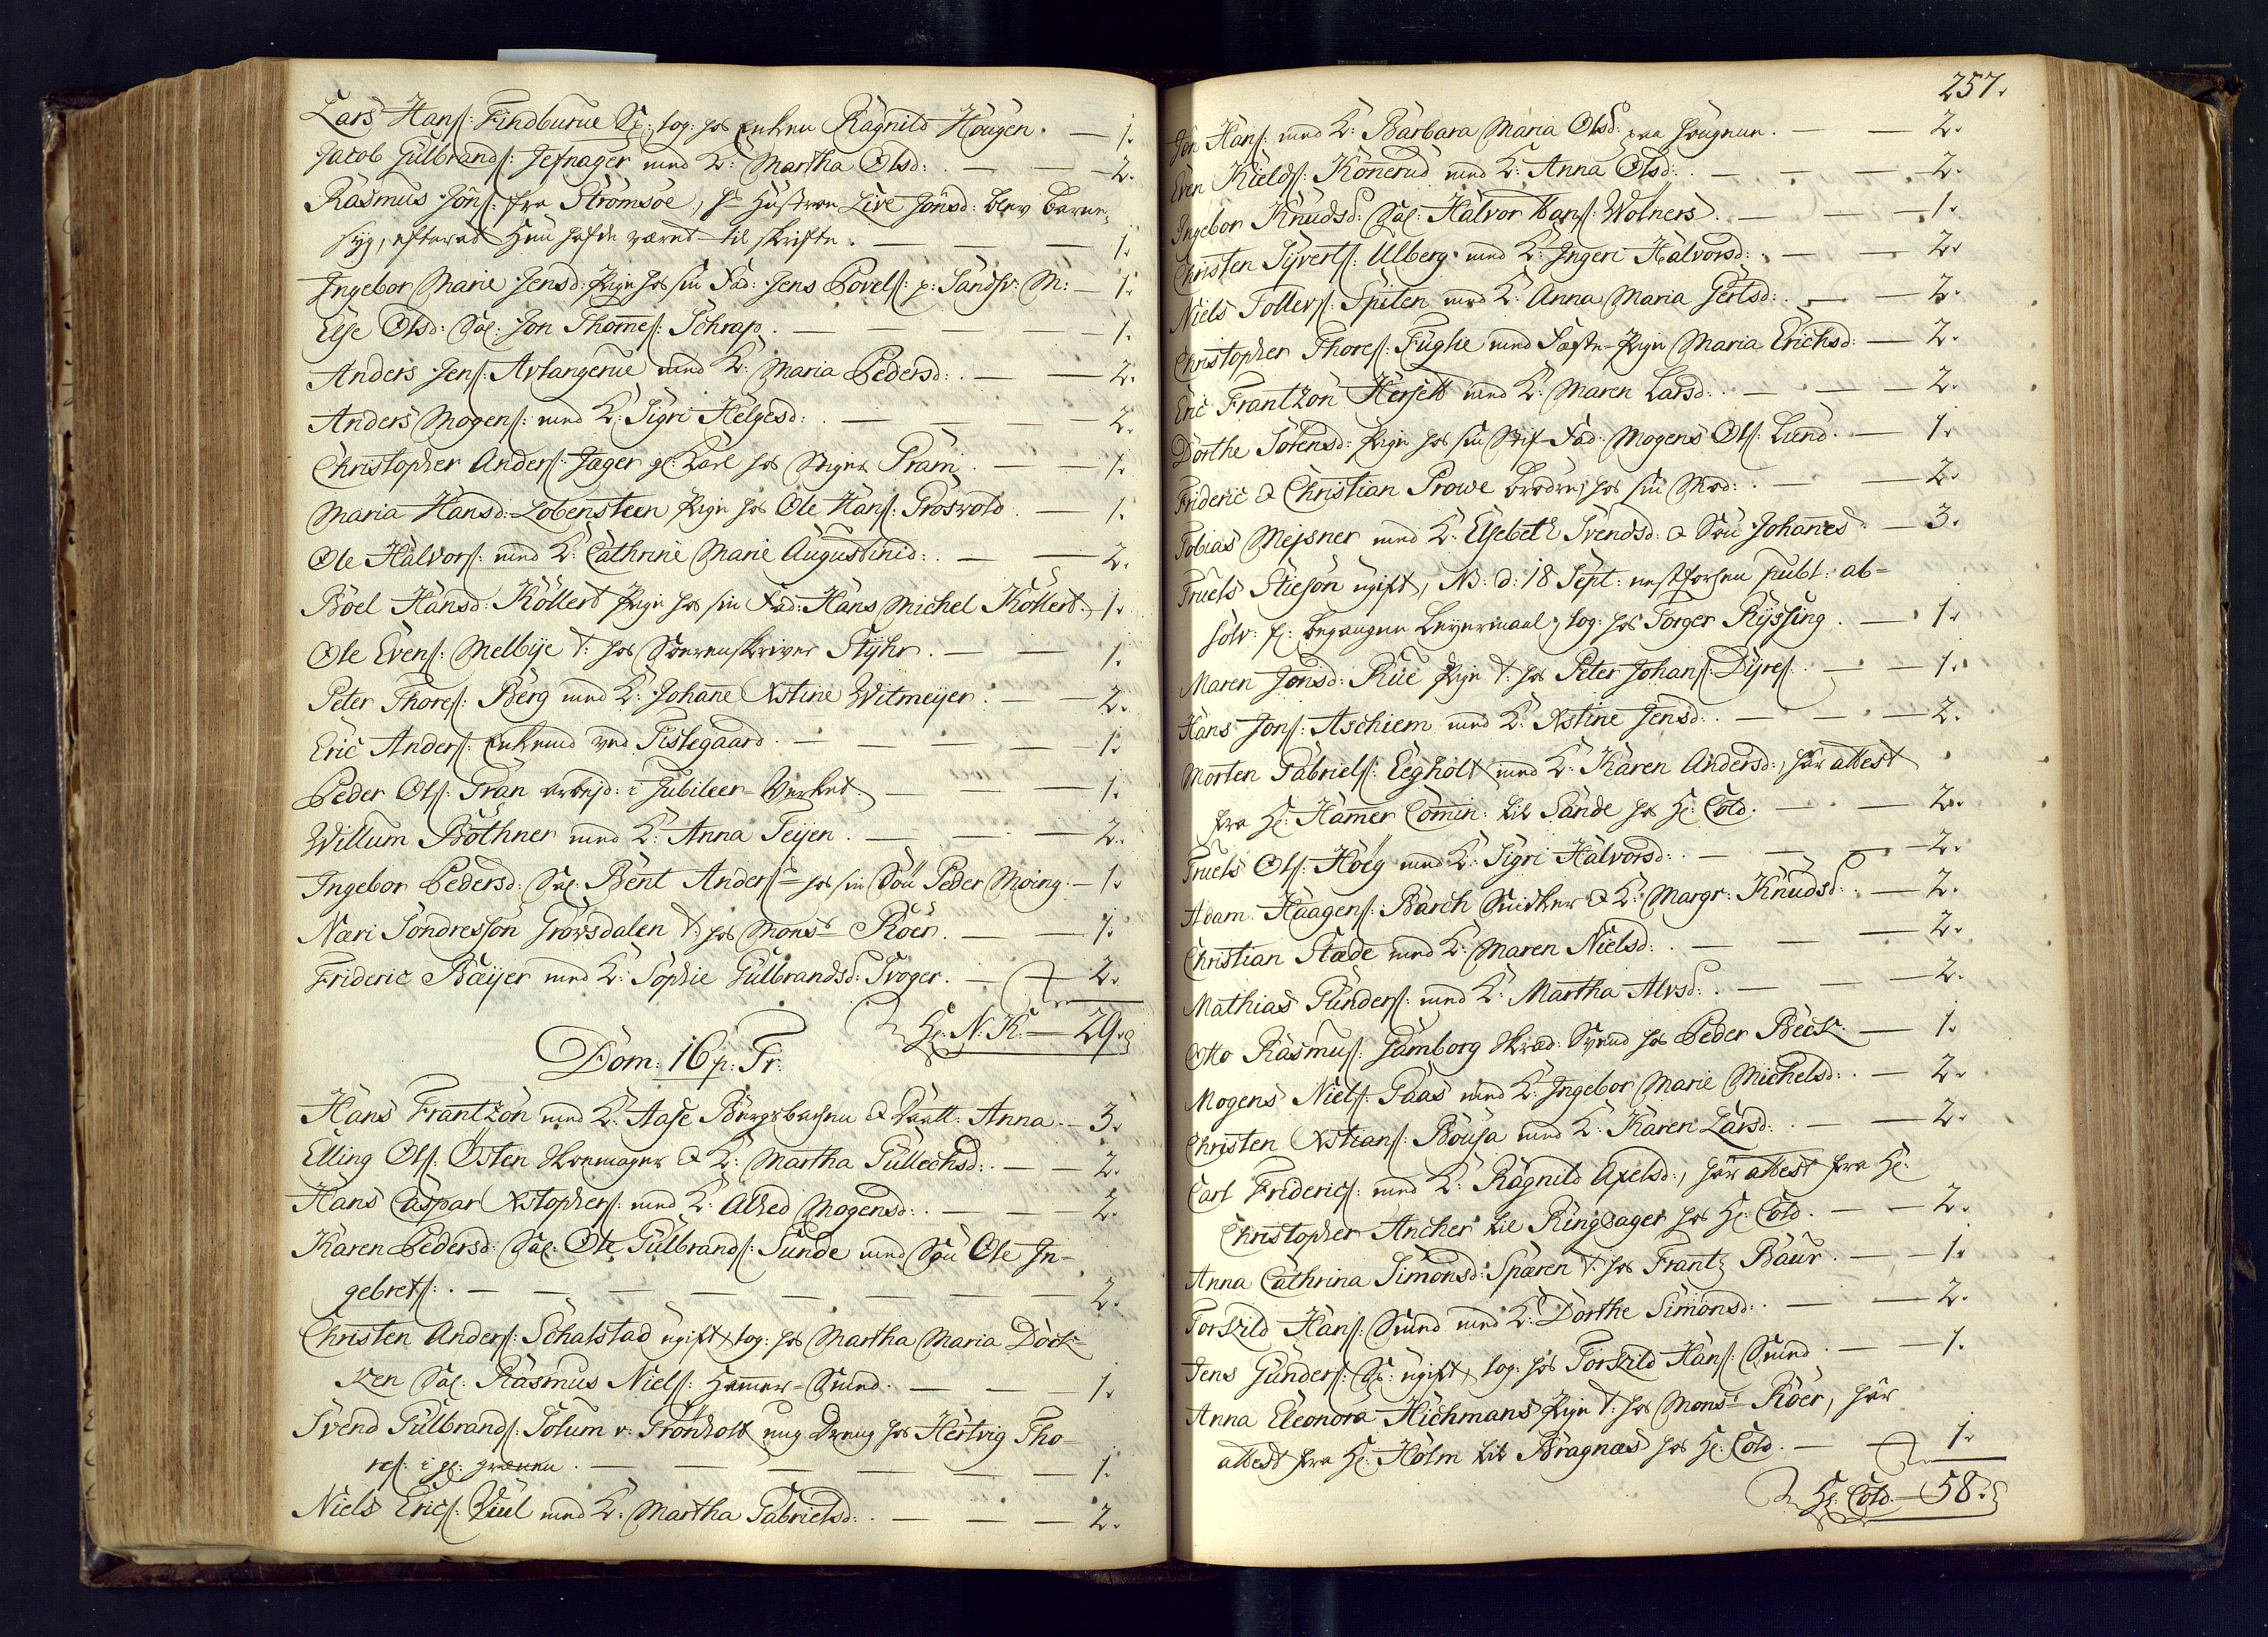 Lars Hanſ: Findburue log: hos Enken Ragnild Hougen. — 1.
Jacob Gulbrandſ: Jefnager med K: Martha Olsd: — 2.
Rasmus Jonſ: fra Strømsøe, Hustroe Live Jonsd: blev barne-
syg, efterat Hun hafde været til skrifte. — 1.
Ingebor Marie Jensd: Pige hos sin Fad: Jens Povelſ: p: Sandsv: M: — 1.
Else Olsd: Sal: Jon Thomeſ: Schrap. — 1.
Anders Jenſ: Avlangerue med K: Maria Pedersd: — 2.
Anders Mogenſ: med K: Sigri Helgesd: — 2.
Christopher Anderſ: Jager gl: Karl hos Stiger Pram. — 1.
Maria Hansd: Lobensteen Pige hos Ole Hanſ: Prosvold. — 1.
Ole Halvorſ: med K: Cathrine Marie Augustinid: — 2.
Boel Hansd: Köllert Pige hos sin Fad: Hans Michel Köllert. — 1.
Ole Evenſ: Melbye t: hos Soerenskriver Stÿhr. — 1.
Peter Thoreſ: Berg med K: Johane Xstine Witmeÿer. — 2.
Eric Anderſ: Enkemd ved Tislegaard. — 1.
Peder Olſ: Gran arbejd: i Jubileer-Verket. — 1.
Willum Böthner med K: Anna Teÿen. — 2.
Ingebor Pedersd: Sal: Bent Anderſ: hos sin Søn Peder Moing. — 1.
Næri Sondresson Grovsdalen t: hos Monsr Röer. — 1.
Frideric Bæÿer med K: Sophie Gulbrandsd: Svoger. — 2.
Hr: N: K: — 29.
Dom: 16 p: Tr:
Hans Frantzön med K: Aase Bergsbachen & Datt: Anna. — 3.
Elling Olſ: Østen Skoemager & K: Martha Gullechsd: — 2.
Hans Caspar Xstopherſ: med K: Alhed Mogensd: — 2.
Karen Pedersd: Sal: Ole Gulbrandſ: Sunde med Søn Ole In-
gebretſ: — 2.
Christen Anderſ: Schalstad ugift, log: hos Martha Maria Döck-
ken Sal: Rasmus Nielſ: Hammer-Smed. — 1.
Svend Gulbrandſ: Solum v: Grönholt ung Dreng hos Hertvig Tho-
reſ: i gl: grænen. — 1.
Niels Ericſ: Juul med K: Martha Gabrielsd: — 2.
257.
Jon Hanſ: med K: Barbara Maria Olsd: paa Haugene. — 2.
Even Kieldſ: Konerud med K: Anna Olsd: — 2.
Ingebor Knudsd: Sal: Halvor Hanſ: Wolners. — 1.
Christen Sÿvertſ: Ulberg med K: Ingeri Halvorsd: — 2.
Niels Tollevſ: Spiten med K: Anna Maria Gertsd: — 2.
Christopher Thoreſ: Fuglie med Fæste-Pige Maria Erichsd: — 2.
Eric Frantzön Hersett med K: Maren Larsd: — 2.
Dorthe Sørensd: Pige hos sin Stif-Fad: Mogens Olſ: Lund. — 1.
Frideric & Christian Prowe brødre, hos sin Mod: — 2.
Tobias Mejsner med K: Elsebeth Svendsd: & Søn Johanes. — 3.
Truels Stiesön ugift, N: d: 18 Sept: nestforhen publ: ab-
solv: f: begangne Leyermaal, log: hos Torger Rÿssing. — 1.
Maren Jonsd: Rue Pige t: hos Peter Johanſ: Dÿreſ: — 1.
Hans Jonſ: Aschiem med K: Xstine Jensd: — 2.
Morten Gabrielſ: Eegholt med K: Karen Andersd:, har attest
fra Hr: Hamer Comin: til Sande hos Hr: Cold. — 2.
Truels Olſ: Höeg med K: Sigri Halvorsd: — 2.
Adam Haagenſ: Barch Snidker & K: Margr: Knudsd: — 2.
Christian Stæde med K: Maren Nielsd: — 2.
Mathias Gunderſ: med K: Martha Alvsd: — 2.
Otto Rasmuſ: Gamborg Skræd: Svend hos Peder Beck. — 1.
Mogens Nielſ: Paas med K: Ingebor Marie Michelsd: — 2.
Christen Xstianſ: Bousa med K: Karen Larsd: — 2.
Carl Fridericſ: med K: Ragnild Axelsd:, har attest fra Hr:
Christopher Ancher til Ringsager hos Hr: Cold. — 2.
Anna Cathrina Simonsd: Sparen t: hos Frantz Baur. — 1.
Torkild Hanſ: Smed med K: Dorthe Simonsd: — 2.
Jens Gunderſ: ugift, log: hos Torkild Hanſ: Smed. — 1.
Anna Eleonora Hichmans Pige t: hos Monsr Röer, har
attest fra Hr: Holm til Bragnæs hos Hr: Cold. — 1.
Hr: Cold. — 58.